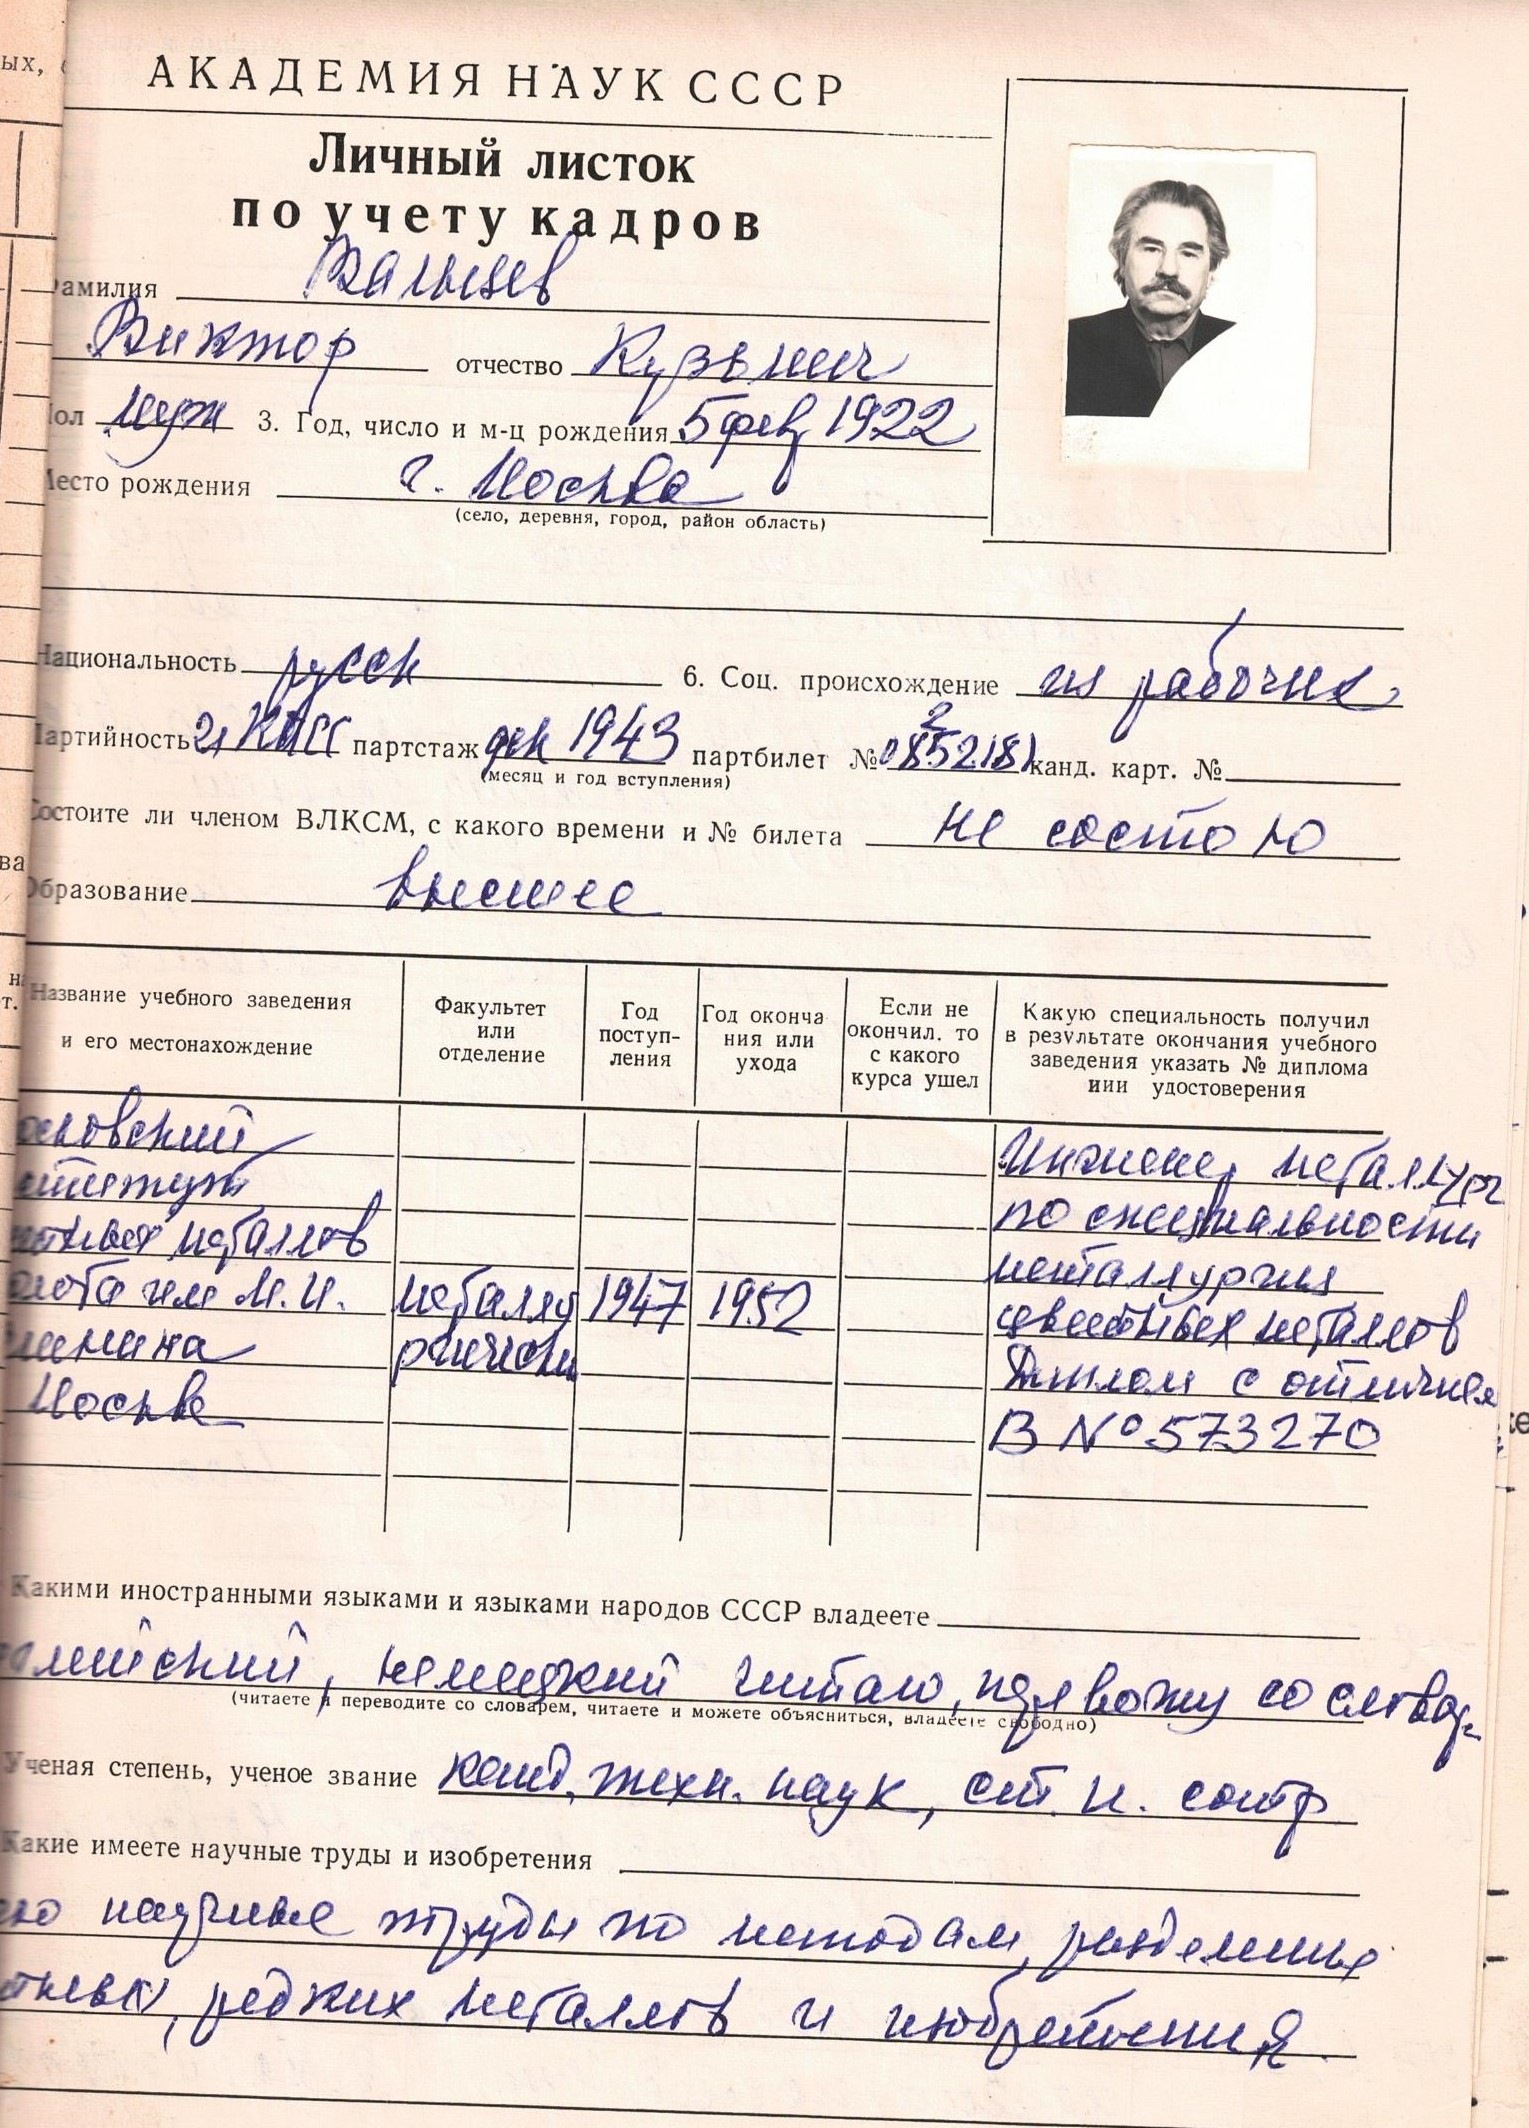 ых,
АКАДЕМИЯ НАУК СССР
Личный листок
по учету кадров
амилия Вальцев
Виктор отчество Кузьмич
ол муж 3. Год, число и м-ц рождения 5 фев 1922
есто рождения г. Москва
(село, деревня, город, район область)
Национальность русск 6. Соц. происхождение из рабочих
артийность чл КПСС партстаж дек 1943 партбилет № канд. карт. №
(месяц и год вступления)
Состоите ли членом ВЛКСМ, с какого времени и № билета не состою
ва
Образование высшее
Название учебного заведения и его местонахождение
Факультет или отделение
Год поступ-ления
Год оконча ния или ухода
Если не окончил. то с какого курса ушел
Какую специальность получил в результате окончания учебного заведения указать № диплома иии удостоверения
осковский
нститут
ветных металлов
олота им М.И.
алинина
Москва
металлу
ргическ
1947
1952
Инженер металлург
по специальности
металлургия
цветных металлов
Диплом с отличием
В № 573270
Какими иностранными языками и языками народов СССР владеете
глийский, немецкий читаю, перевожу со словар.
(читаете и переводите со словарем, читаете и можете объясниться, владеете свободно)
Ученая степень, ученое звание канд. техн. наук, ст. н. сотр
Какие имеете научные труды и изобретения
ею научные труды по методам разделения
редких металлов и изобретения.